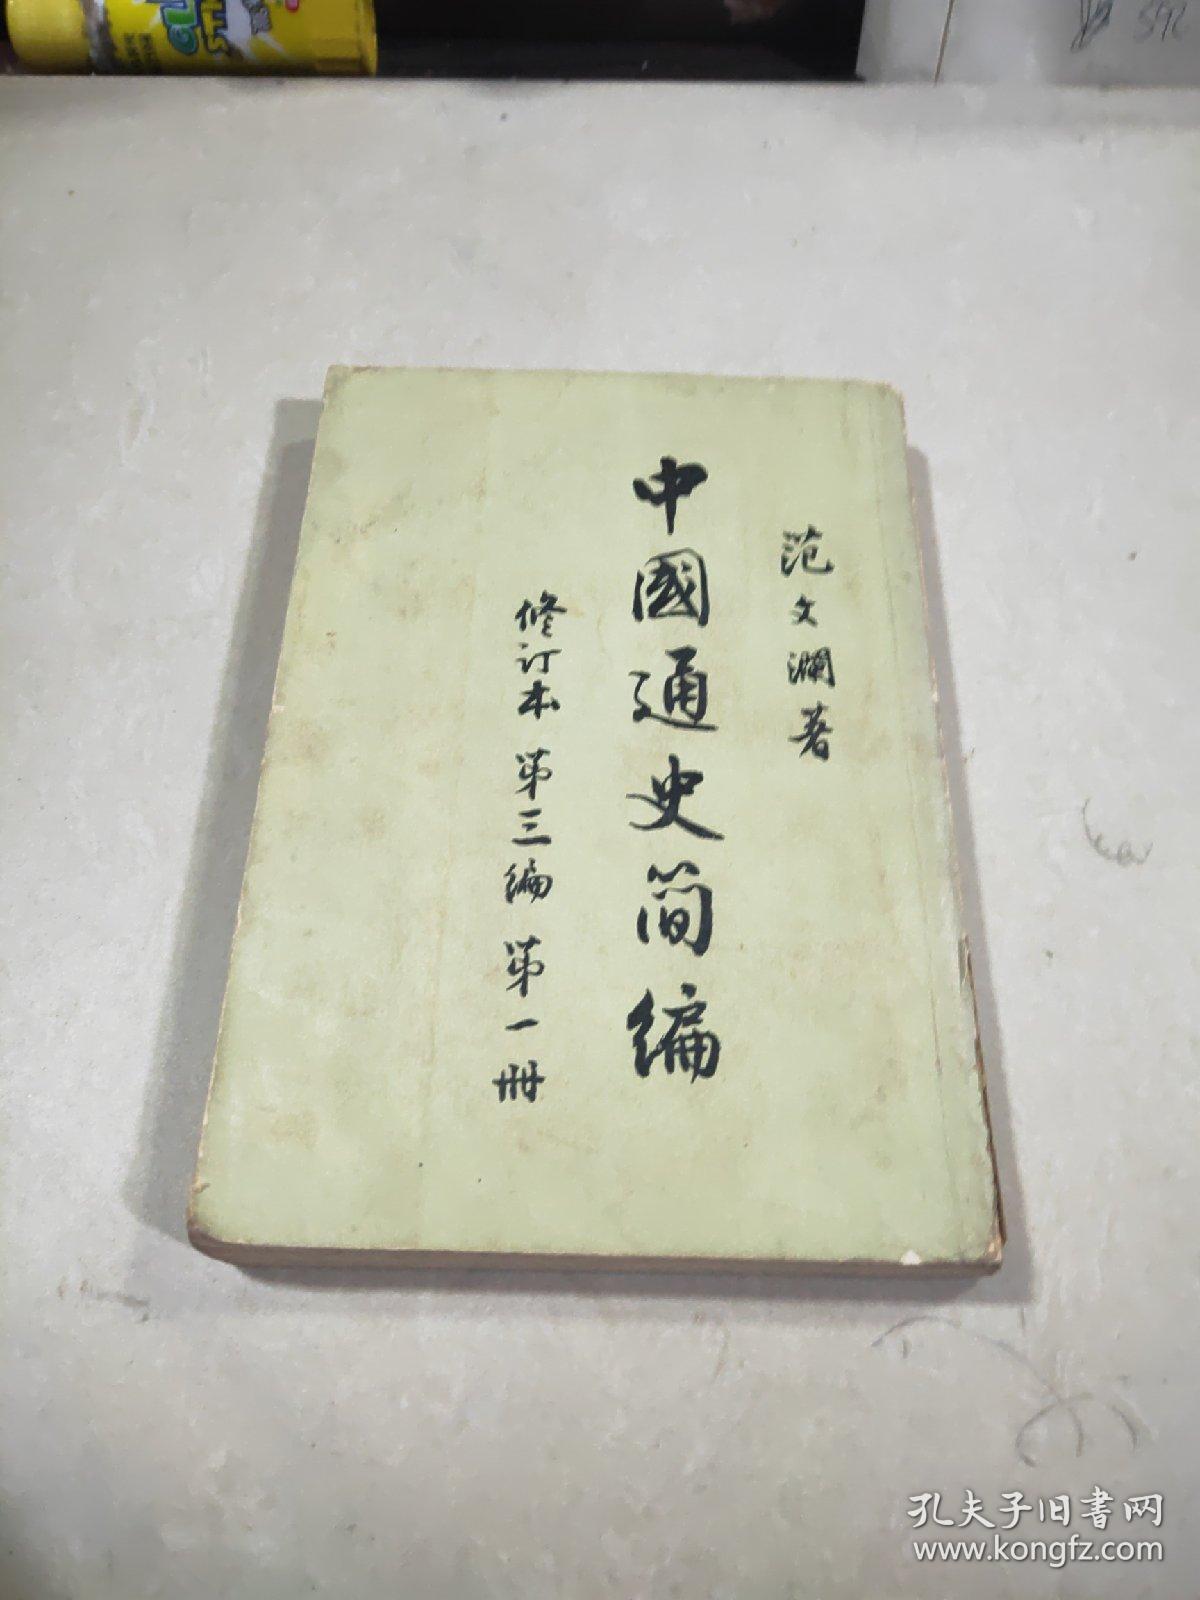 范文澜著
中國通史简编
修订本 第三编 第一册
孔夫子旧书网
www.kongfz.com